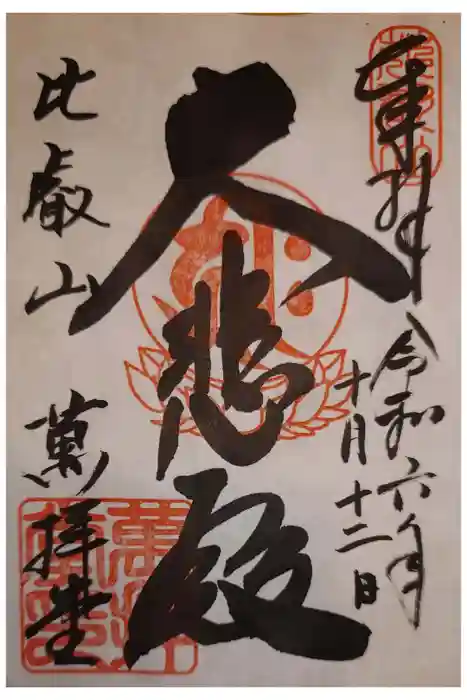 奉拝
令和六年
十月十二日
大悲殿
比叡山 萬拝堂